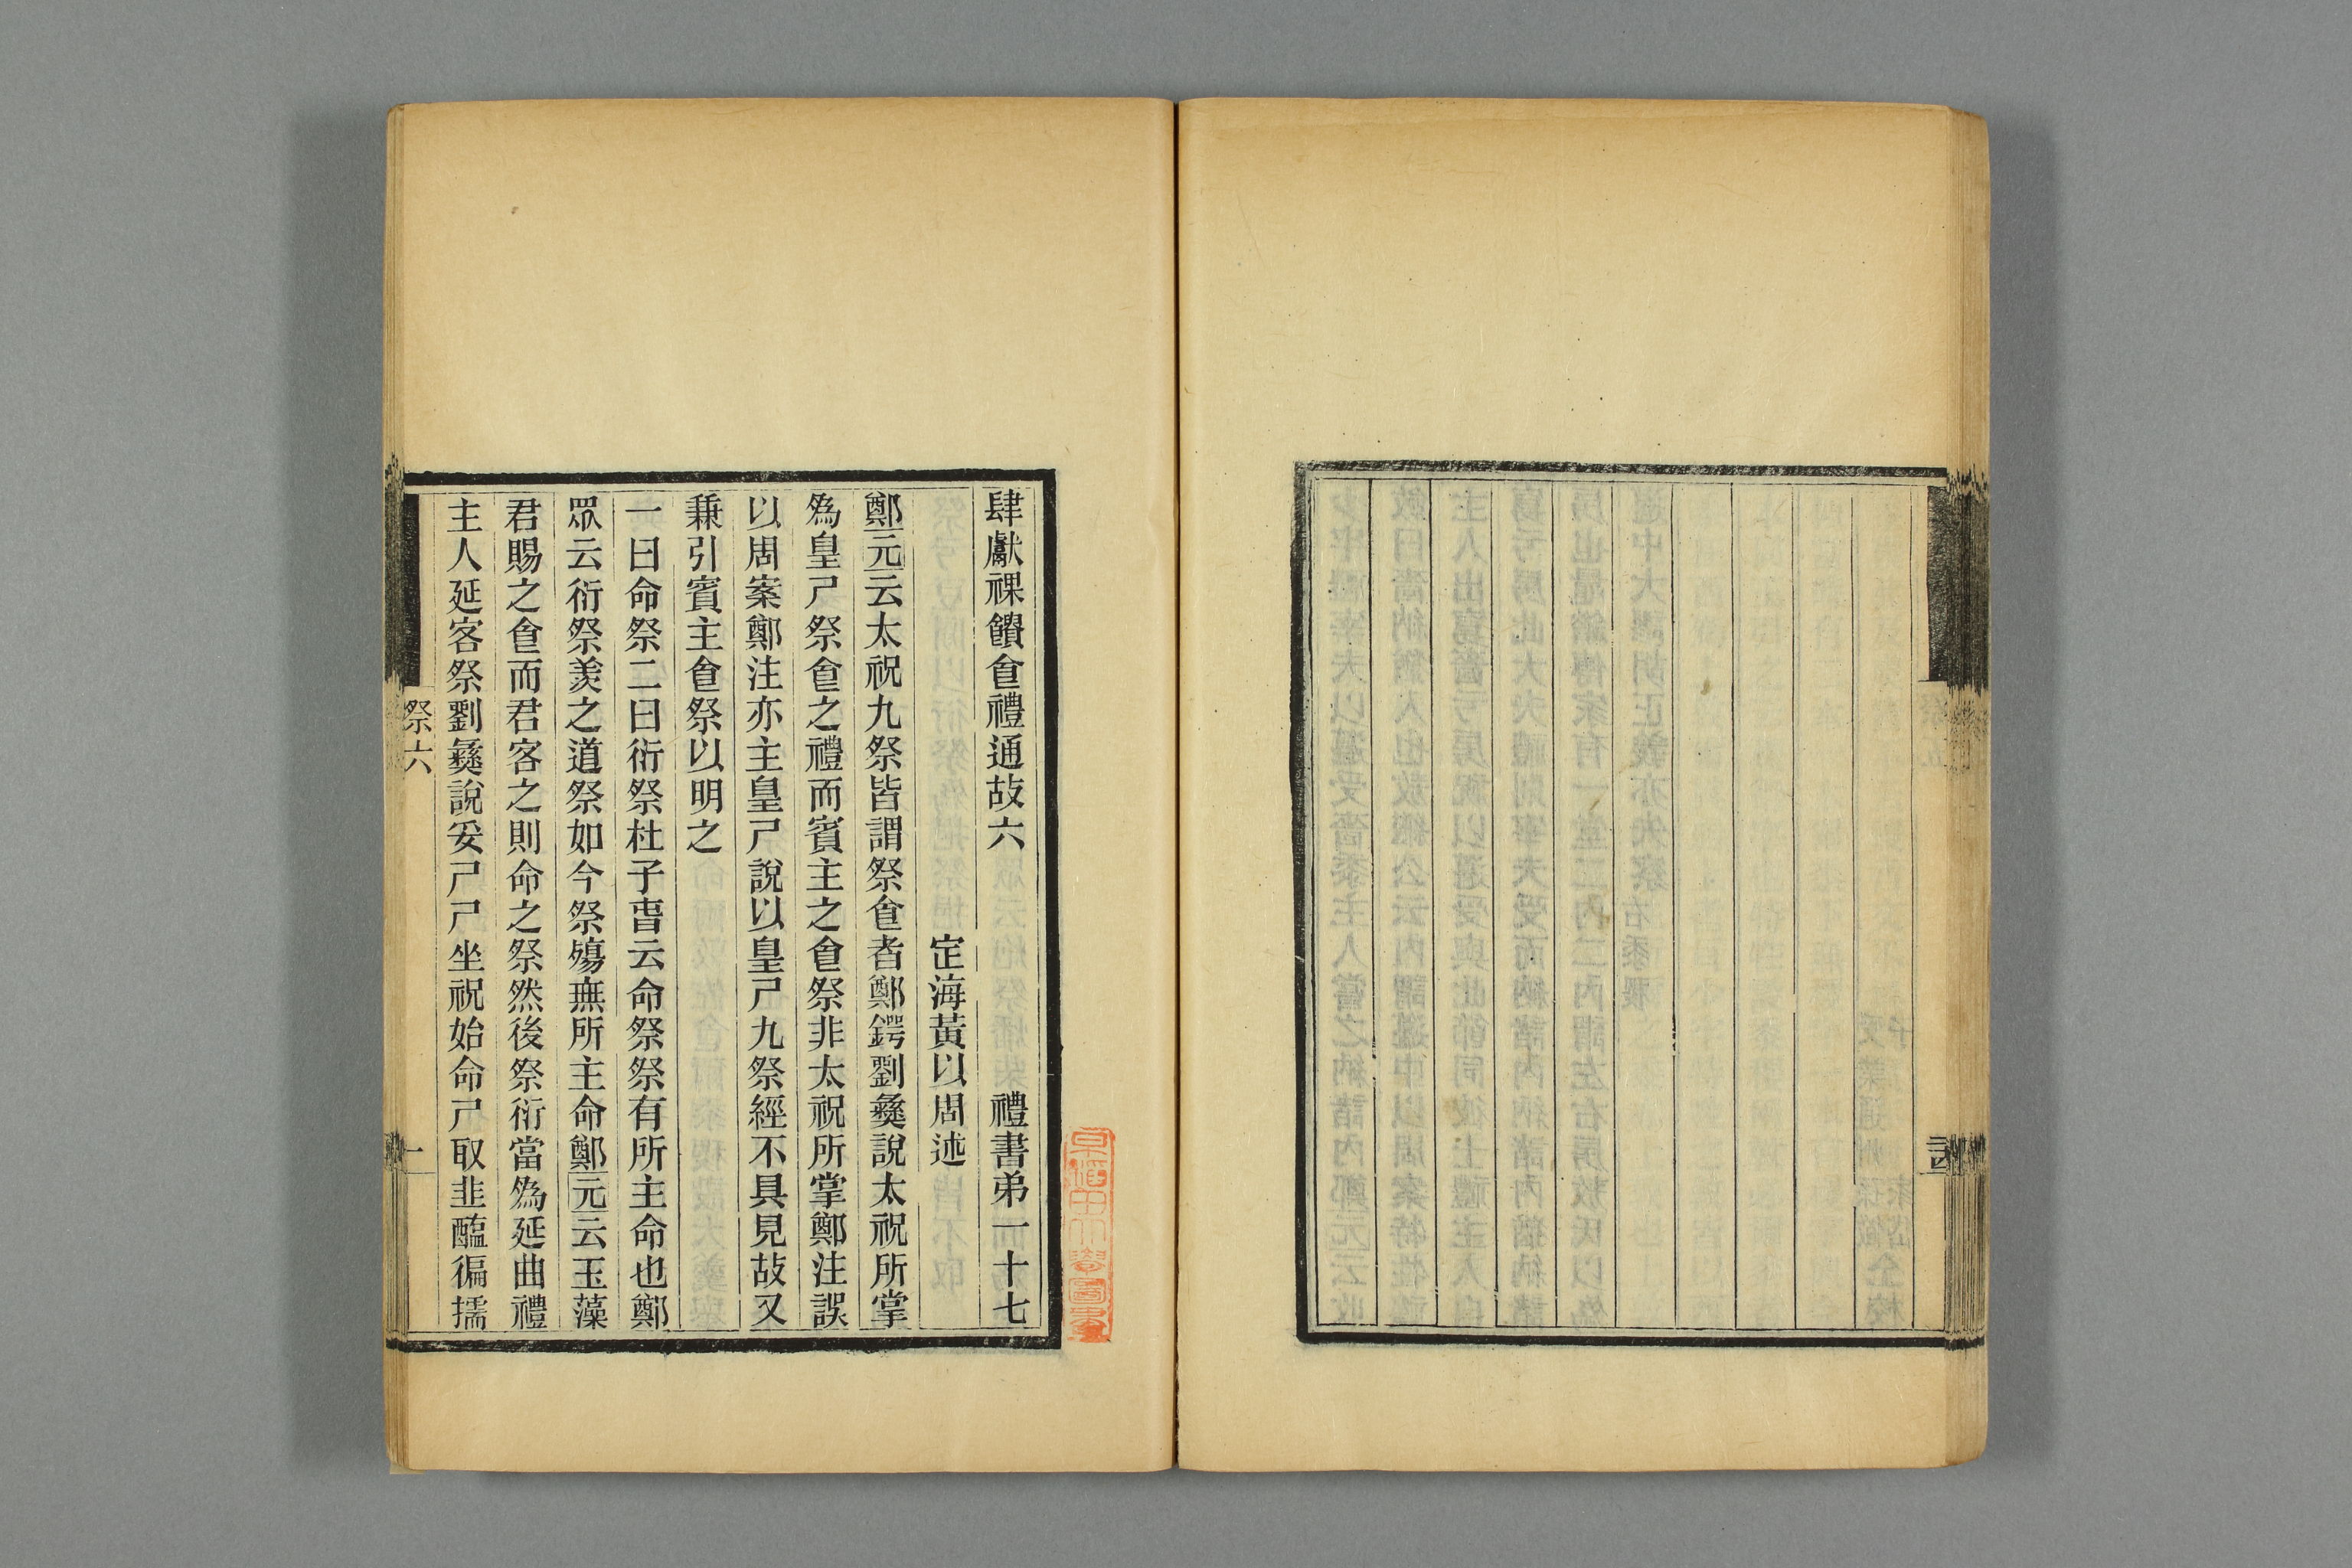 肆獻祼饋㑹禮通故六　禮書弟一十七
定海黃以周述
鄭元云太祝九祭皆謂祭㑹者鄭鍔劉彝說太祝所掌
爲皇尸祭㑹之禮而賓主之㑹祭非太祝所掌鄭注誤
以周案鄭注亦主皇尸說以皇尸九祭經不具見故又
兼引賓主㑹祭以明之
一曰命祭二曰衍祭杜子萅云命祭祭有所主命也鄭
眾云衍祭羨之道祭如今祭殤無所主命鄭元云玉藻
君賜之㑹而君客之則命之祭然後祭衍當爲延曲禮
主人延客祭劉彝說妥尸尸坐祝始命尸取韭醢徧擩
祭六
一
早稻田大學圖書